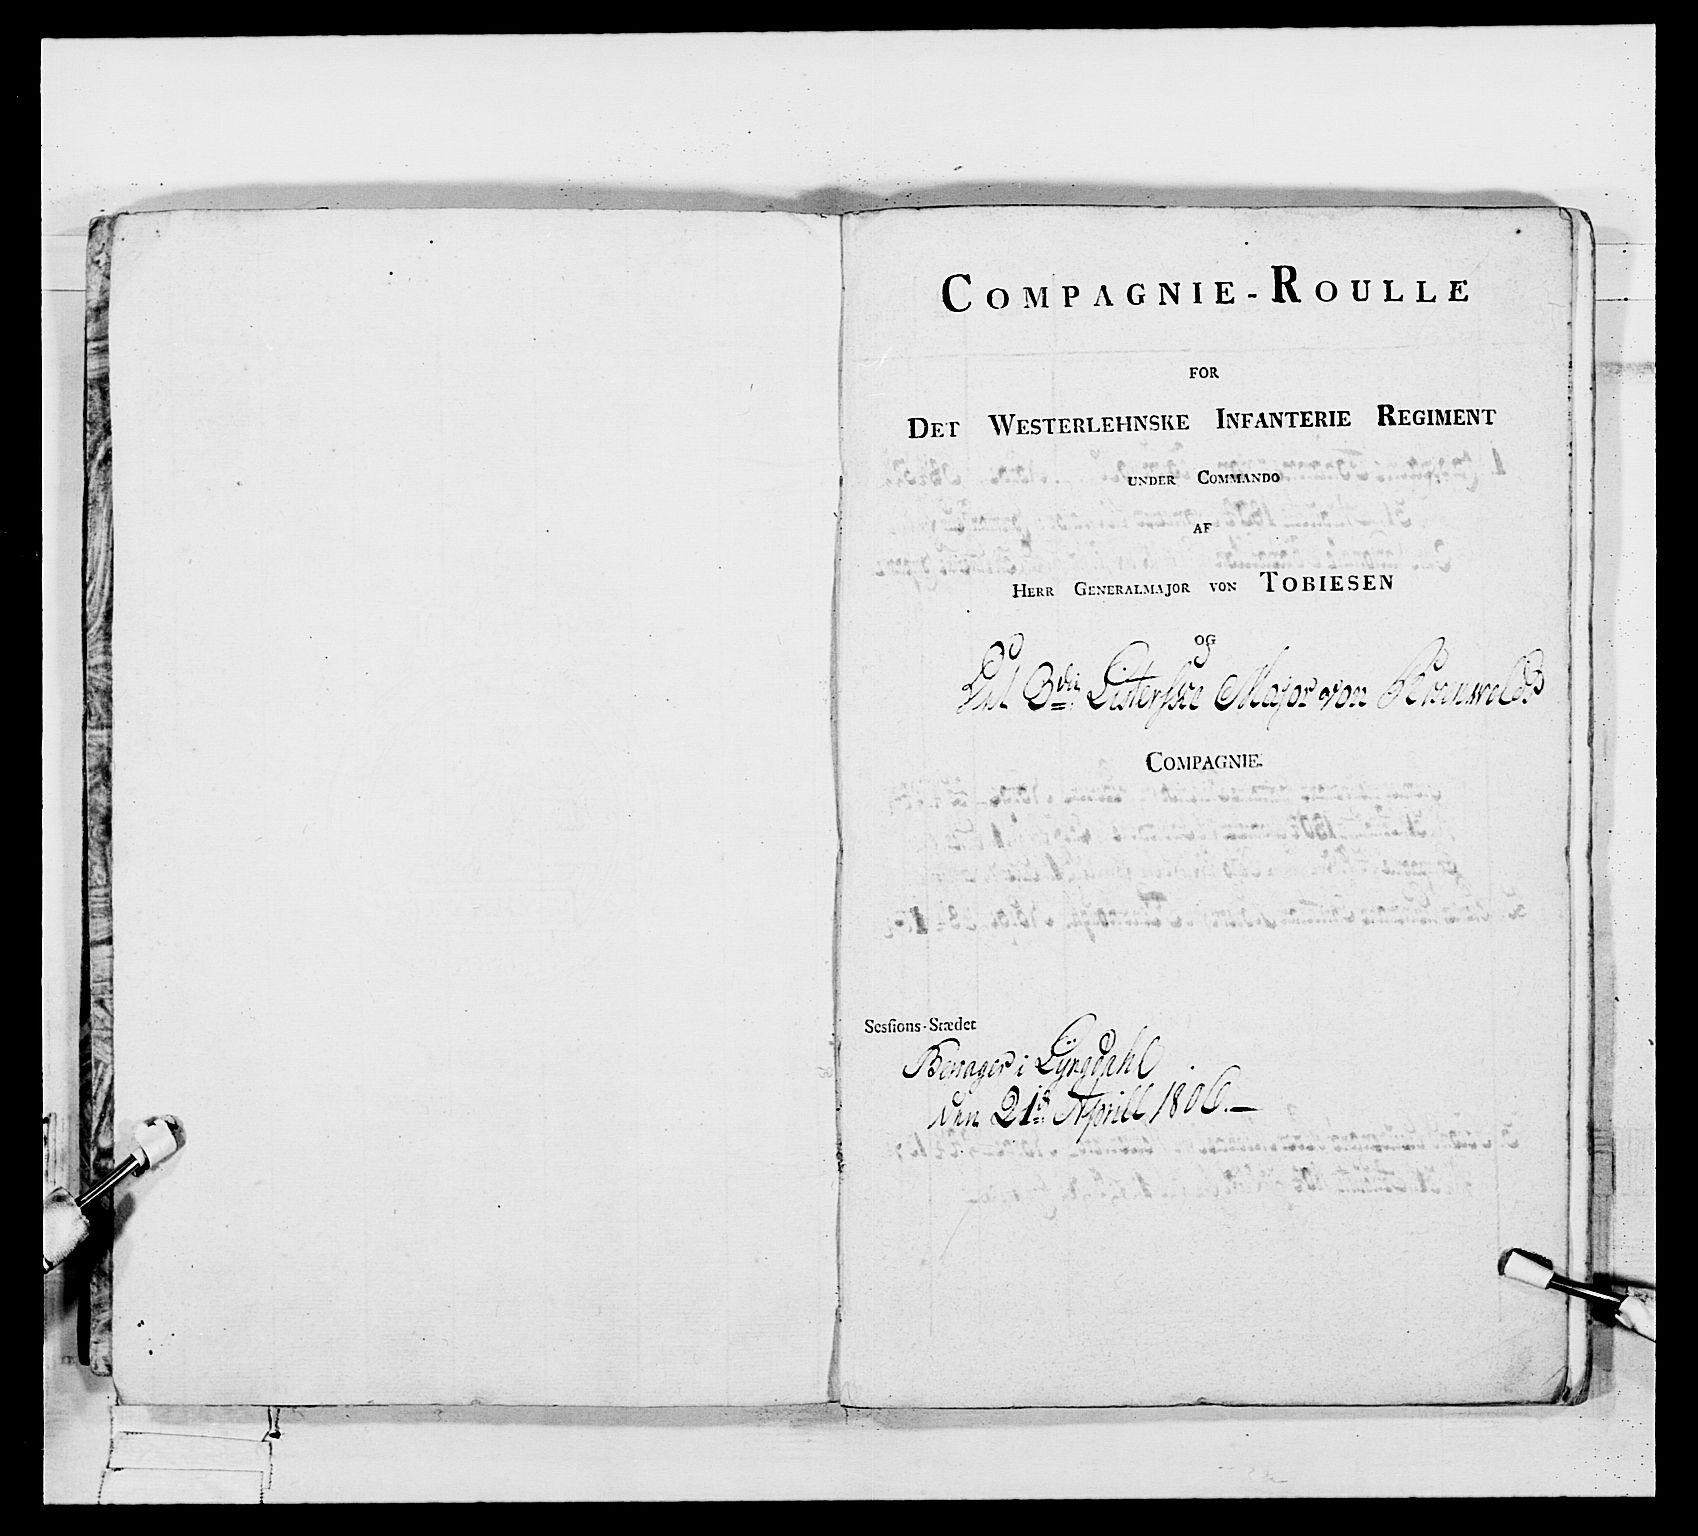 COMPAGNIE-ROULLE
FOR
DET WESTERLEHNSKE INFANTERIE REGIMENT
UNDER COMMANDO
AF
HERR GENERALMAJOR VON TOBIESEN
OG
Det 3die Listerske Major von
COMPAGNIE.
Sesſions-Stædet
i Lyngdahl
den 21de Aprill 1806.—